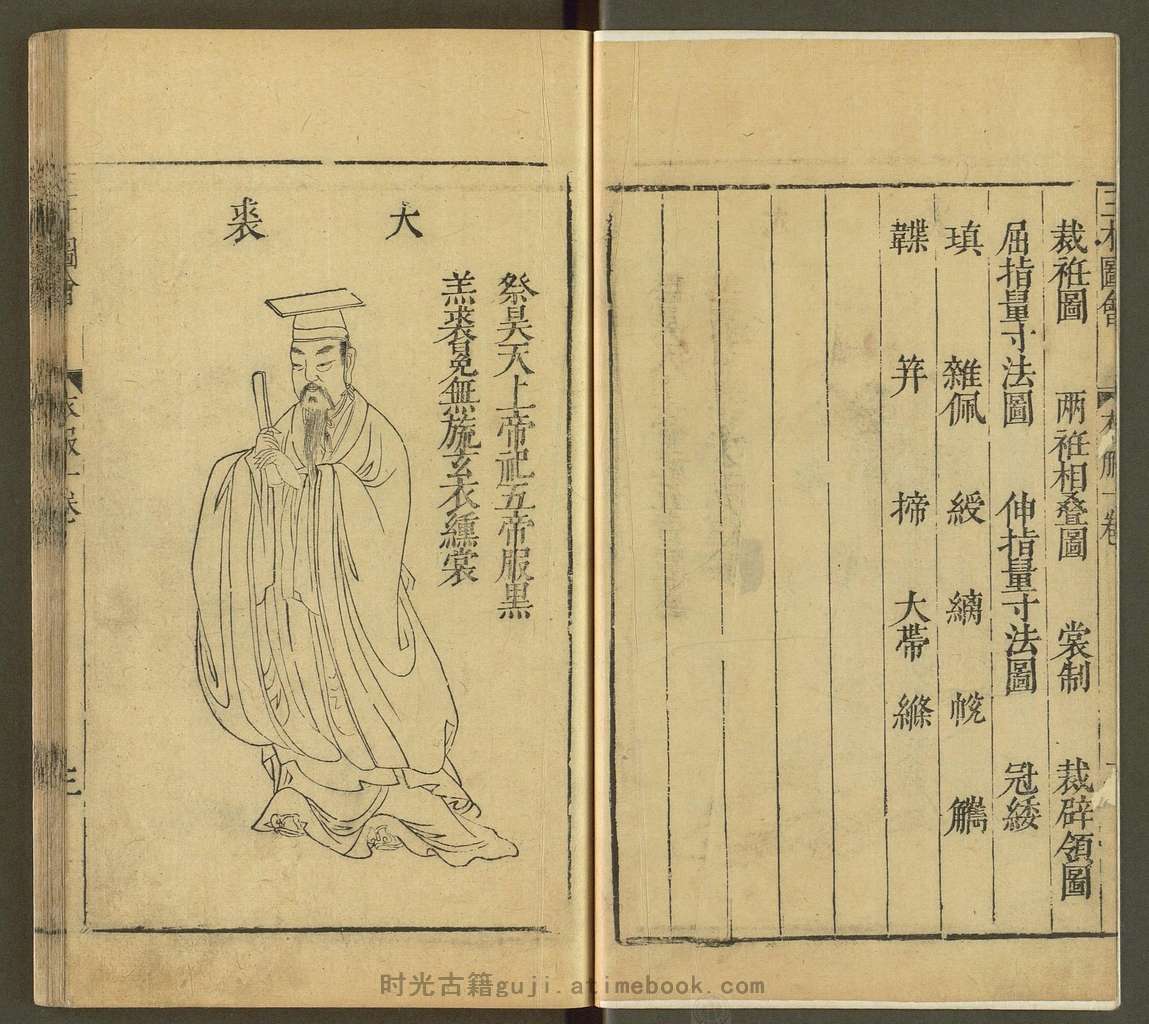 三才圖會 衣服一卷
裁衽圖 兩衽相疊圖 裳制 裁辟領圖
屈指量寸法圖 伸指量寸法圖 冠緌
瑱 雜佩 綬 縭 帨 觿
韘 笄 揥 大帶 絛
大裘
祭昊天上帝祀五帝服黑
羔裘冕無旒玄衣纁裳
圖會 衣服一卷 三
时光古籍guji.atimebook.com